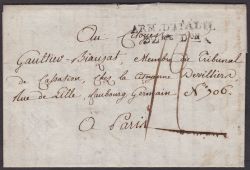 Au Citoyen
ARM. D'ITALIE
Gaultier-Biauzat, Membre du Tribunal
de Cassation, chez la Citoyenne Devilliers
Rue de Lille, fauxbourg Germain N.° 706.
A Paris